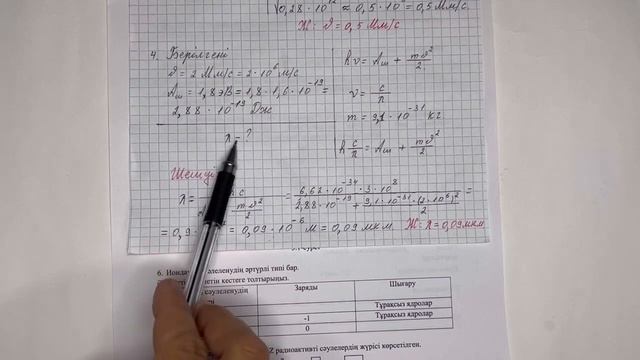 √0,28 · 10¹² ≈ 0,5 · 10⁶ = 0,5 Мм/с.
Ж: ϑ = 0,5 Мм/с
4. Берілгені
ϑ = 2 Мм/с = 2 · 10⁶ м/с
Aш = 1,8 эВ = 1,8 · 1,6 · 10⁻¹⁹ =
2,88 · 10⁻¹⁹ Дж
λ - ?
hν = Aш + mϑ²/2
ν = c/λ
m = 9,1 · 10⁻³¹ кг
h c/λ = Aш + mϑ²/2
Шешуі
λ = c / mϑ²/2 = 6,62 · 10⁻³⁴ · 3 · 10⁸ / 2,88 · 10⁻¹⁹ + 9,1 · 10⁻³¹ · (2 · 10⁶)²/2 =
= 0,9 = 0,09 · 10⁻⁶ м = 0,09 мкм Ж: λ = 0,09 мкм
6. әртүрлі типі бар.
кестеге толтырыңыз.
Заряды Шығару
Тұрақсыз ядролар
-1 Тұрақсыз ядролар
0
радиоактивті сәулелердің жүрісі көрсетілген.